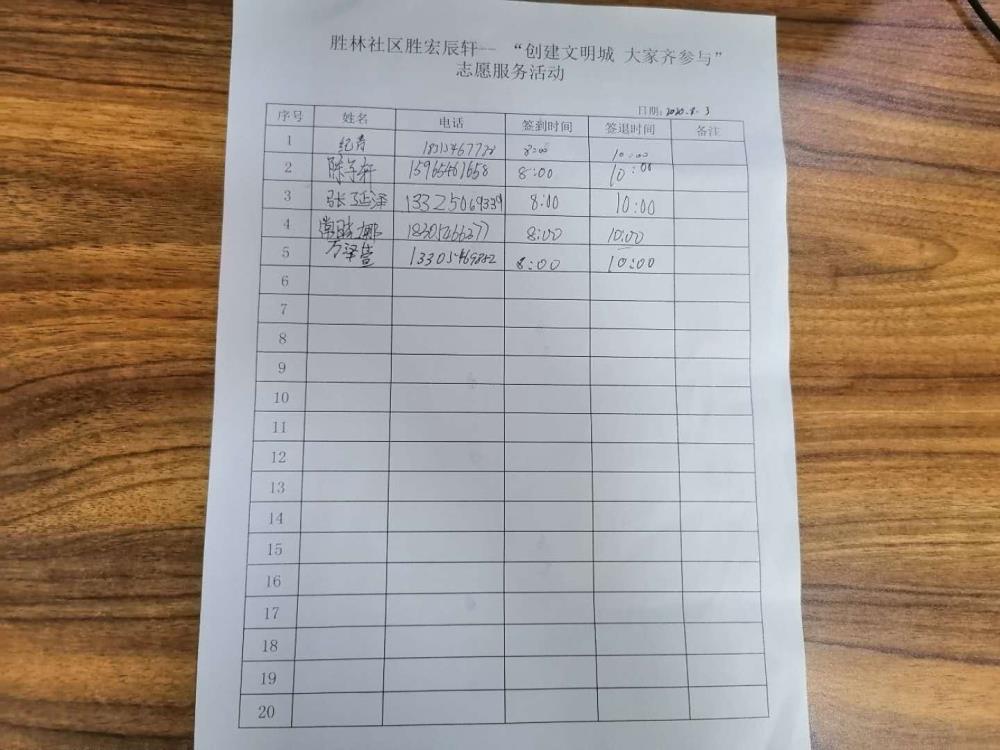 胜林社区胜宏辰轩—“创建文明城 大家齐参与”
志愿服务活动
日期：2020.8.3
序号 姓名 电话 签到时间 签退时间 备注
1 纪青 8:00 10:00
2 陈子轩 15965461658 8:00 10:00
3 张延泽 13325069339 8:00 10:00
4 8:00 10:00
5 万泽萱 8:00 10:00
6
7
8
9
10
11
12
13
14
15
16
17
18
19
20